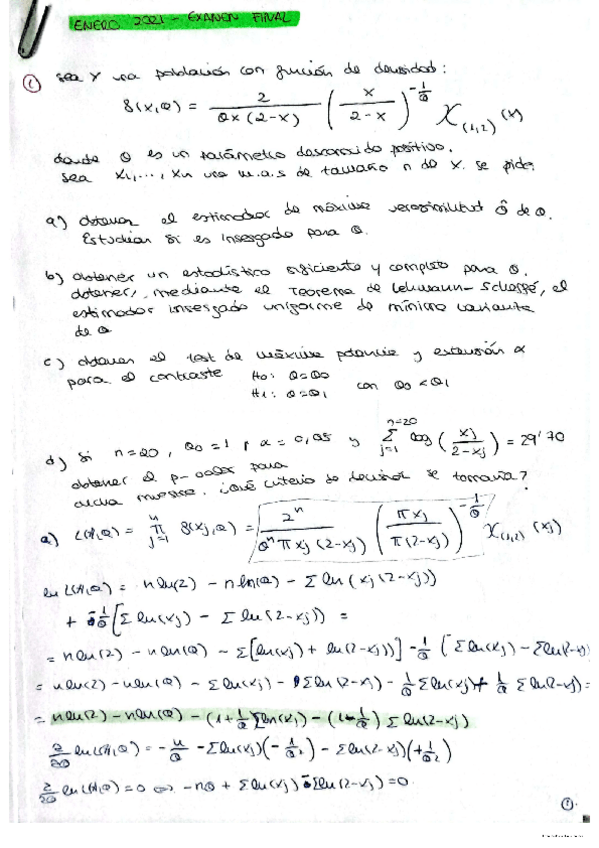 ENERO 2021 - EXAMEN FINAL
① Sea X una población con función de densidad:
f(x,θ) = 2 / (θx(2-x)) (x / (2-x))^(-1/θ) χ_(1,2) (x)
donde θ es un parámetro desconocido positivo.
Sea X1,..., Xn una m.a.s de tamaño n de X. se pide:
a) obtener el estimador de máxima verosimilitud θ̂ de θ.
Estudiar si es insesgado para θ.
b) obtener un estadístico suficiente y completo para θ.
obtener, mediante el Teorema de Lehmann-Scheffé, el
estimador insesgado uniforme de mínima varianza
de θ
c) obtener el test de máxima potencia y extensión α
para el contraste H0: θ=θ0
H1: θ=θ1 con θ0<θ1
d) Si n=20, θ0=1, α=0,05 y Σ_(j=1)^(n=20) log(xj / (2-xj)) = 29'70
obtener el p-valor para
dicha muestra. ¿Qué criterio de decisión se tomaría?
a) L(θ) = π_(j=1)^n f(xj,θ) = 2^n / (θ^n π xj (2-xj)) (π xj / π(2-xj))^(-1/θ) χ_(1,2) (xj)
ln L(θ) = n ln(2) - n ln(θ) - Σ ln (xj(2-xj))
+ 1/θ [Σ ln(xj) - Σ ln(2-xj)] =
= n ln(2) - n ln(θ) - Σ[ln(xj) + ln(2-xj)] - 1/θ (Σ ln(xj) - Σ ln(2-xj)
= n ln(2) - n ln(θ) - Σ ln(xj) - Σ ln(2-xj) - 1/θ Σ ln(xj) + 1/θ Σ ln(2-xj) =
= n ln(2) - n ln(θ) - (1+1/θ) Σ ln(xj) - (1-1/θ) Σ ln(2-xj)
∂/∂θ ln L(θ) = - n/θ - Σ ln(xj)(-1/θ²) - Σ ln(2-xj)(+1/θ²)
∂/∂θ ln L(θ) = 0 ⇔ -nθ + Σ ln(xj) - Σ ln(2-xj) = 0
①